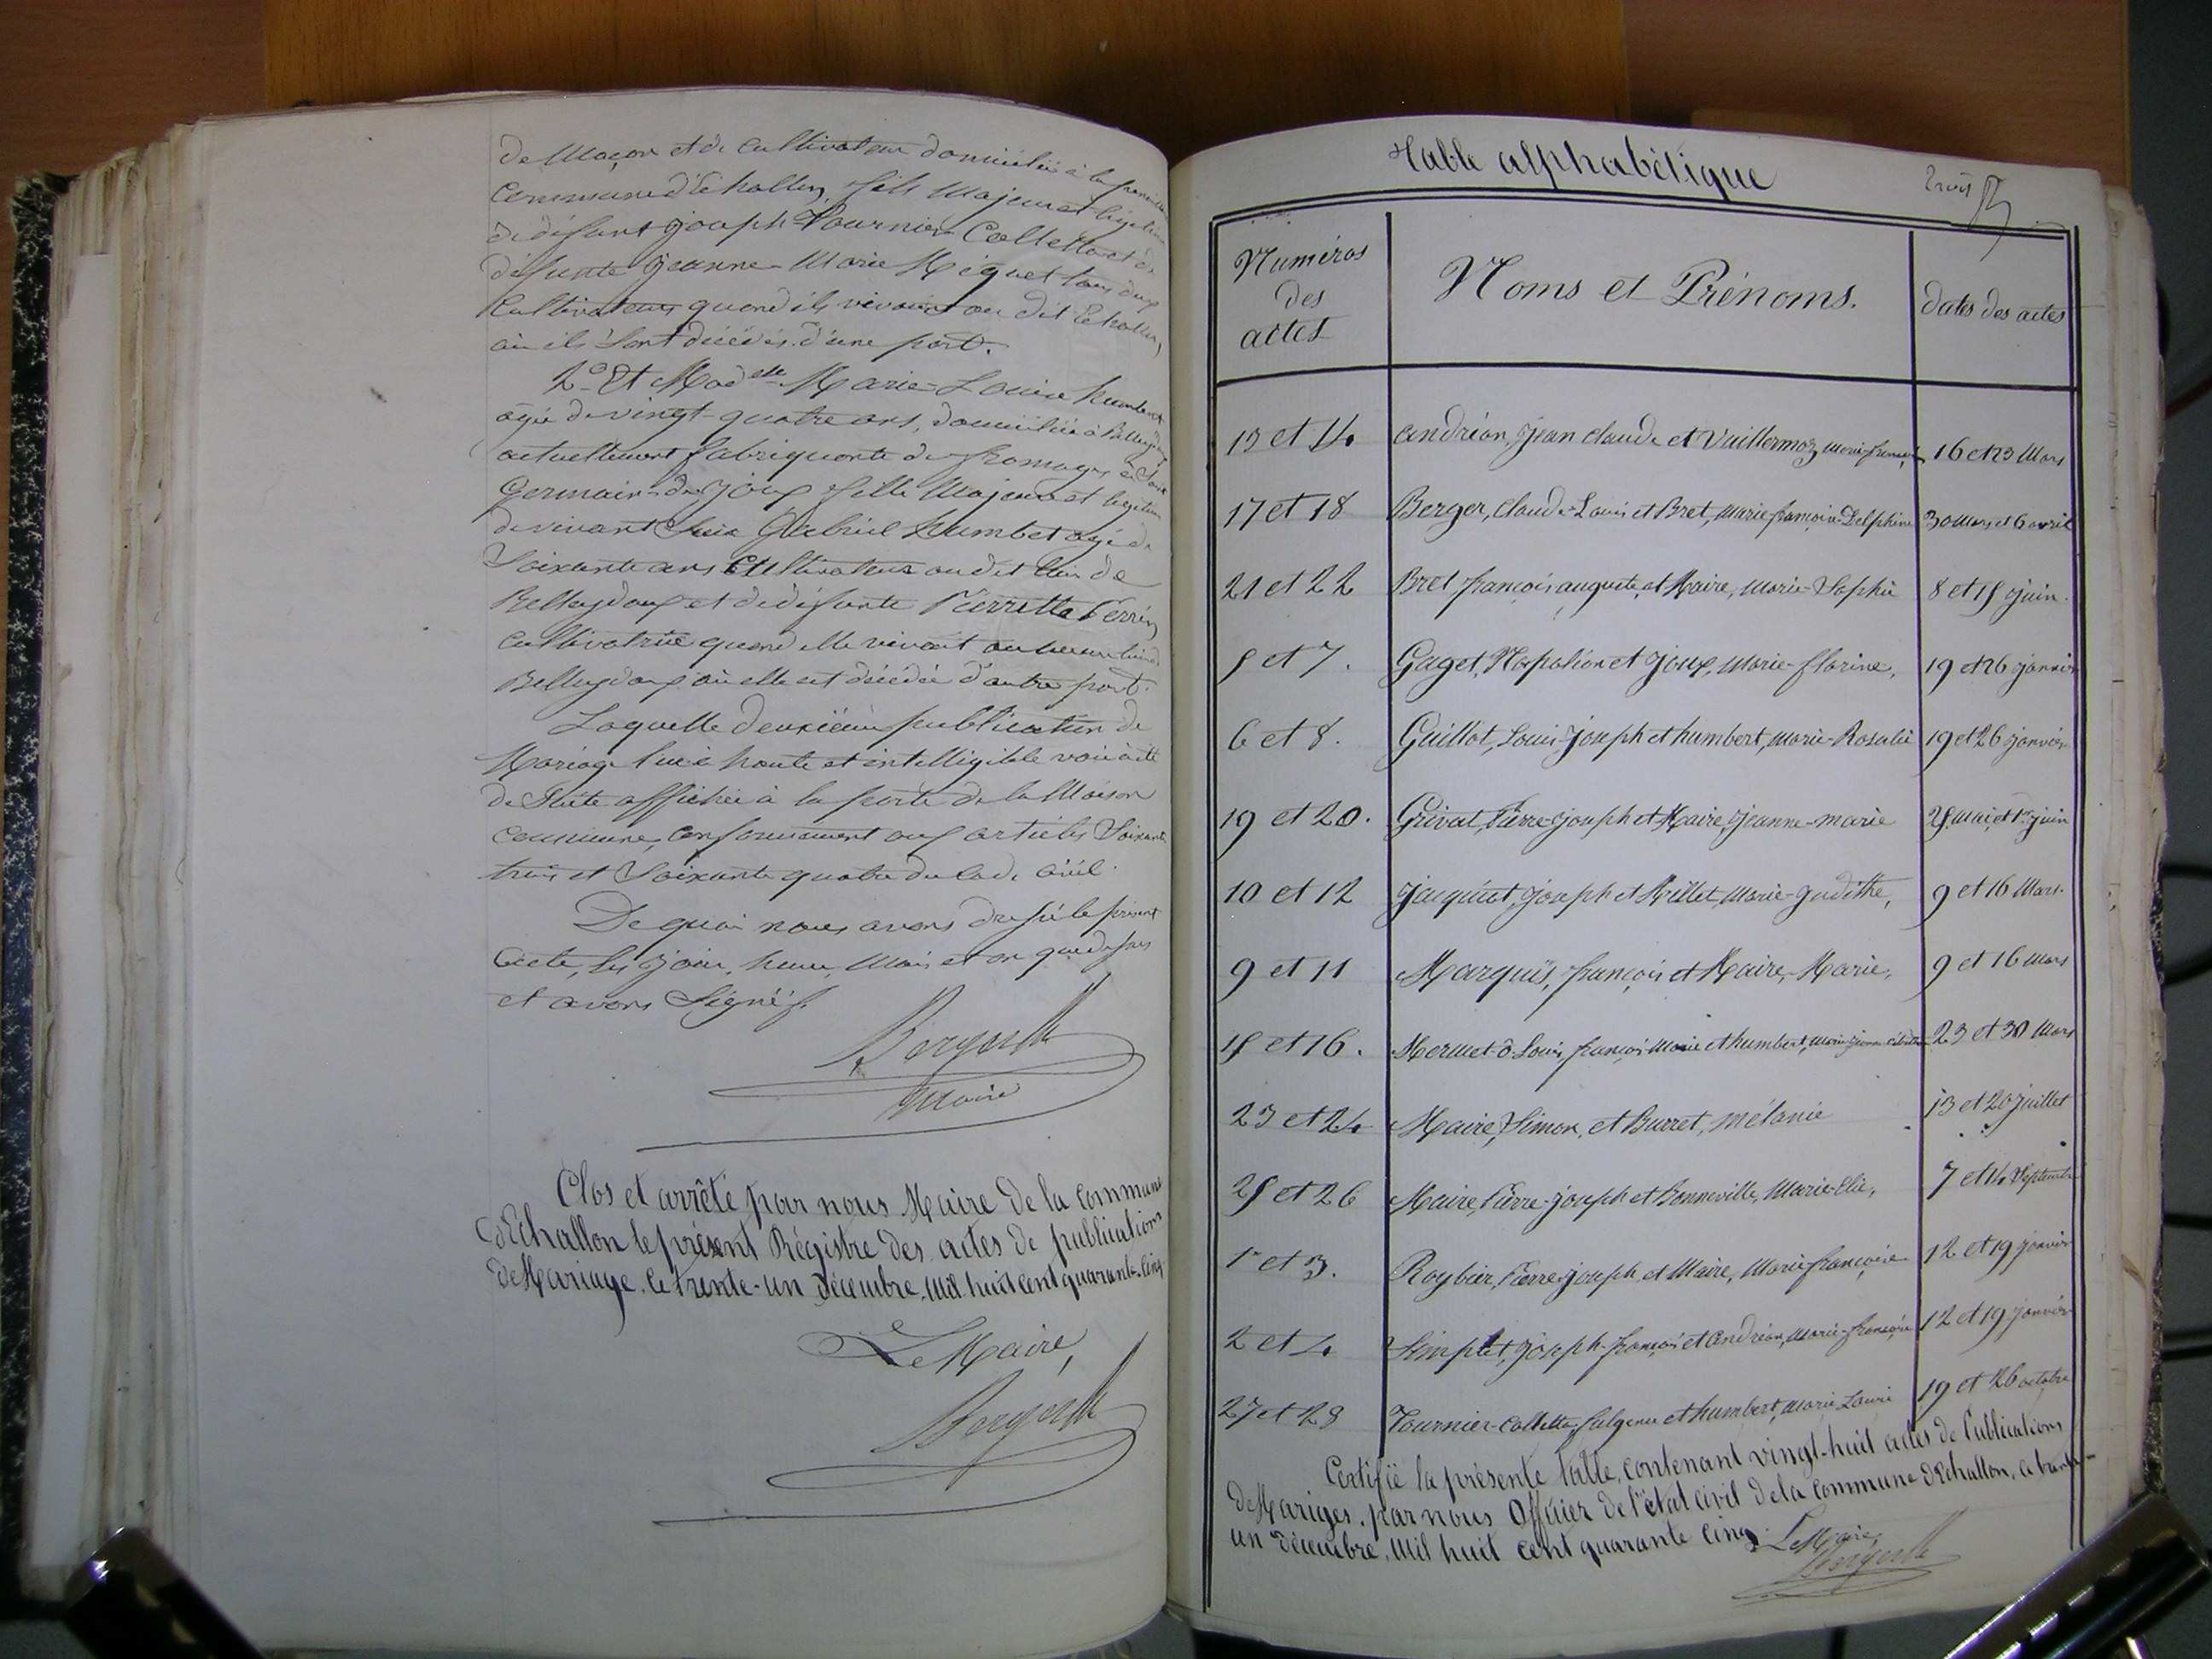 de Maçon et de cultivateur domicilié à la
Commune d'Echallon, fils Majeur et légitime
de défunt Joseph Tournier Colletta et de
défunte Jeanne Marie Niquet tous deux
Cultivateurs quand ils vivaient au dit Echallon,
où ils sont décédés d'une part.
2º Et Madelle Marie-Louise humbert
âgée de vingt-quatre ans, domiciliée à Belleydoux
actuellement fabriquante de fromages à
Germain-de-Joux fille Majeure et légitime
de vivant Gabriel humbert âgé de
Soixante ans Cultivateur au dit lieu de
Belleydoux et de défunte Pierrette Perrin
cultivatrice quand elle vivait au même lieu
Belleydoux où elle est décédée d'autre part.
Laquelle deuxième publication de
Mariage lue à haute et intelligible voix a été
de Suite affichée à la porte de la Maison
commune, conformément aux articles Soixante
trois et Soixante quatre du Code Civil.
De quoi nous avons dressé le présent
acte, les jour, heure, Mois et an que dessus
et avons Signés.
maire
Clos et arrêté par nous Maire de la commune
d'Echallon le présent Régistre des actes de publications
de Mariage, le trente-un décembre, mil huit cent quarante-cinq
Le Maire,
Table alphabétique
Numéros des actes
Noms et Prénoms.
dates des actes
13 et 14 andréan, Jean claude et Vuillermoz, marie 16 et 23 Mars
17 et 18 Berger, claude-Louis et Bret, marie-françoise-Delphine 30 mars et 6 avril
21 et 22 Bret françois auguste, et Maire, Marie-Sophie 8 et 15 juin.
5 et 7. Gaget, Napoléon et Joux, Marie-florine, 19 et 26 janvier
6 et 8. Guillot, Louis-Joseph et humbert, marie-Rosalie 19 et 26 janvier
19 et 20. Grivat, Pierre-Joseph et Maire, Jeanne-marie 25 mai, et 1er juin
10 et 12 Jacquiot, Joseph et Millet, Marie-Judithe, 9 et 16 Mars.
9 et 11 Marquis, françois et Maire, Marie, 9 et 16 mars
15 et 16. Mermet-d-Louis, françois Marie et humbert, 23 et 30 Mars
23 et 24 Maire, Simon, et Burret, mélanie 13 et 20 juillet
25 et 26 Maire, Pierre-joseph et Bonneville, Marie-Elie, 7 et 14 Septembre
1er et 3. Roybier, Pierre-joseph et Maire, Marie françoise 12 et 19 janvier
2 et 4 Simplet, Joseph-françois et andréan, Marie-françoise 12 et 19 janvier
27 et 28 Tournier-Colletta, fulgence et humbert, Marie Louise 19 et 26 octobre
Certifié la présente table, contenant vingt-huit actes de Publications
de Mariges, par nous Officier de l'état civil de la commune d'Echallon, ce trente-
un décembre, mil huit cent quarante cinq. Le Maire,